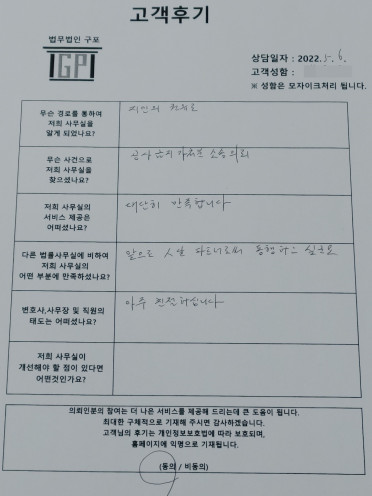 고객후기
법무법인 구포
IGPI
상담일자 : 2022. 5. 6.
고객성함 :
※ 성함은 모자이크처리 됩니다.
무슨 경로를 통하여
저희 사무실을
알게 되었나요?
지인의 권유로
무슨 사건으로
저희 사무실을
찾으셨나요?
공사금지가처분 소송의뢰
저희 사무실의
서비스 제공은
어떠셨나요?
대단히 만족합니다
다른 법률사무실에 비하여
저희 사무실의
어떤 부분에 만족하셨나요?
앞으로 人生 파트너로써 동행하고 싶은곳
변호사,사무장 및 직원의
태도는 어떠셨나요?
아주 친절하십니다
저희 사무실이
개선해야 할 점이 있다면
어떤것인가요?
의뢰인분의 참여는 더 나은 서비스를 제공해 드리는데 큰 도움이 됩니다.
최대한 구체적으로 기재해 주시면 감사하겠습니다.
고객님의 후기는 개인정보보호법에 따라 보호되며,
홈페이지에 익명으로 기재됩니다.
(동의 / 비동의)